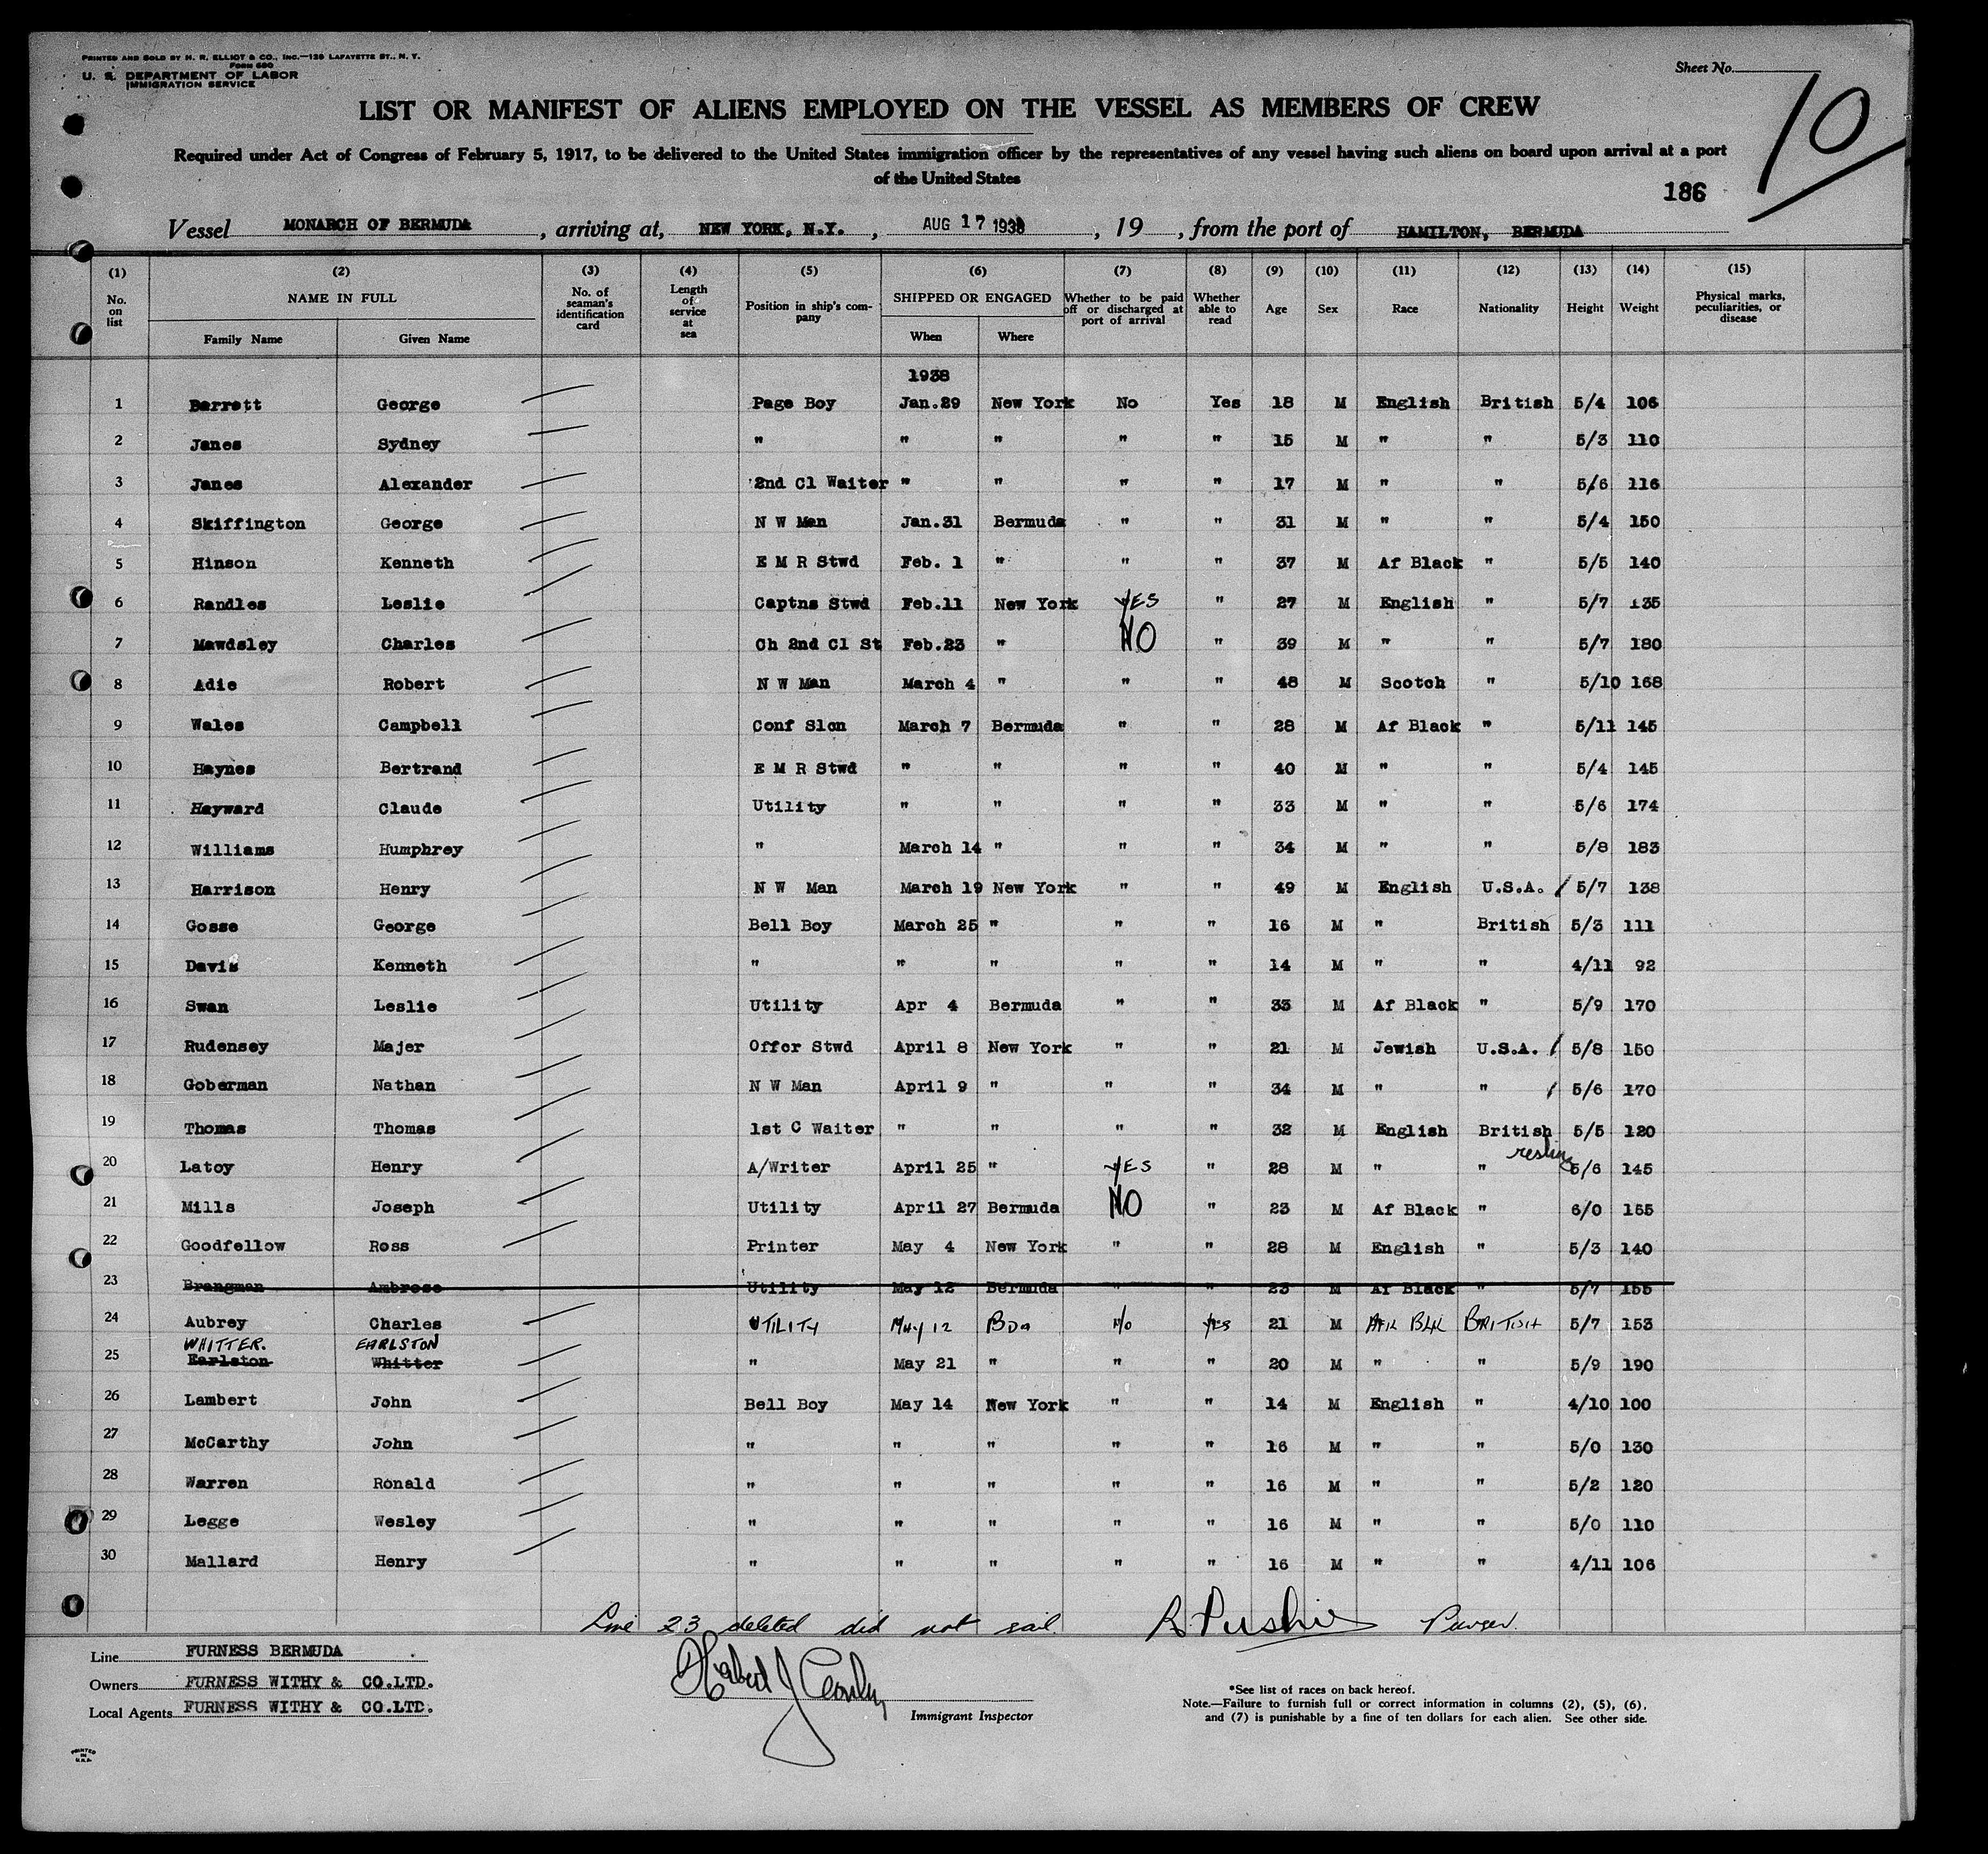 PRINTED AND SOLD BY H. R. ELLIOT & CO., INC.—129 LAFAYETTE ST., N. Y.
FORM 680
U. S. DEPARTMENT OF LABOR
IMMIGRATION SERVICE
Sheet No.
10
LIST OR MANIFEST OF ALIENS EMPLOYED ON THE VESSEL AS MEMBERS OF CREW
Required under Act of Congress of February 5, 1917, to be delivered to the United States immigration officer by the representatives of any vessel having such aliens on board upon arrival at a port
of the United States
186
Vessel MONARCH OF BERMUDA , arriving at, NEW YORK, N.Y. , AUG 17 1938 , 19 , from the port of HAMILTON, BERMUDA
(1) (2) (3) (4) (5) (6) (7) (8) (9) (10) (11) (12) (13) (14) (15)
No. on list NAME IN FULL Family Name Given Name No. of seaman's identification card Length of service at sea Position in ship's company SHIPPED OR ENGAGED When Where Whether to be paid off or discharged at port of arrival Whether able to read Age Sex Race Nationality Height Weight Physical marks, peculiarities, or disease
1938
1 Barrett George Page Boy Jan.29 New York No Yes 18 M English British 5/4 106
2 Janes Sydney " " " " " 15 M " " 5/3 110
3 Janes Alexander 2nd Cl Waiter " " " " 17 M " " 5/6 116
4 Skiffington George N W Man Jan.31 Bermuda " " 31 M " " 5/4 150
5 Hinson Kenneth E M R Stwd Feb. 1 " " " 37 M Af Black " 5/5 140
6 Randles Leslie Captns Stwd Feb.11 New York YES " 27 M English " 5/7 135
7 Mawdsley Charles Ch 2nd Cl St Feb.23 " NO " 39 M " " 5/7 180
8 Adie Robert N W Man March 4 " " " 48 M Scotch " 5/10 168
9 Wales Campbell Conf Slcn March 7 Bermuda " " 28 M Af Black " 5/11 145
10 Haynes Bertrand E M R Stwd " " " " 40 M " " 5/4 145
11 Hayward Claude Utility " " " " 33 M " " 5/6 174
12 Williams Humphrey " March 14 " " " 34 M " " 5/8 183
13 Harrison Henry N W Man March 19 New York " " 49 M English U.S.A. / 5/7 138
14 Gosse George Bell Boy March 25 " " " 16 M " British 5/3 111
15 Davis Kenneth " " " " " 14 M " " 4/11 92
16 Swan Leslie Utility Apr 4 Bermuda " " 33 M Af Black " 5/9 170
17 Rudensey Majer Offcr Stwd April 8 New York " " 21 M Jewish U.S.A. / 5/8 150
18 Goberman Nathan N W Man April 9 " " " 34 M " " / 5/6 170
19 Thomas Thomas 1st C Waiter " " " " 32 M English British 5/5 120
20 Latoy Henry A/Writer April 25 " YES " 28 M " " 5/6 145
21 Mills Joseph Utility April 27 Bermuda NO " 23 M Af Black " 6/0 155
22 Goodfellow Ross Printer May 4 New York " " 28 M English " 5/3 140
23 Brangman Ambrose Utility May 12 Bermuda " " 23 M Af Black " 5/7 155
24 Aubrey Charles UTILITY May 12 BDa No Yes 21 M AFR BLK BRITISH 5/7 153
WHITTER. EARLSTON
25 Earlston Whitter " May 21 " " " 20 M " " 5/9 190
26 Lambert John Bell Boy May 14 New York " " 14 M English " 4/10 100
27 McCarthy John " " " " " 16 M " " 5/0 130
28 Warren Ronald " " " " " 16 M " " 5/2 120
29 Legge Wesley " " " " " 16 M " " 5/0 110
30 Mallard Henry " " " " " 16 M " " 4/11 106
Line 23 deleted did not sail. Purser.
Line FURNESS BERMUDA
Owners FURNESS WITHY & CO.LTD.
Local Agents FURNESS WITHY & CO.LTD.
Immigrant Inspector
*See list of races on back hereof.
Note.—Failure to furnish full or correct information in columns (2), (5), (6),
and (7) is punishable by a fine of ten dollars for each alien. See other side.
PRINTED IN U.S.A.